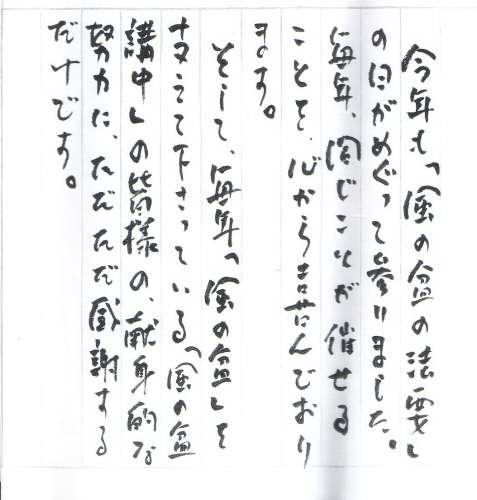 今年も「風の盆の法要」
の日がめぐって参りました。
毎年、同じことが催せる
ことを、心から喜んでおり
ます。
そして、毎年「風の盆」を
支えて下さっている「風の盆
講中」の皆様の、献身的な
努力に、ただただ感謝する
だけです。